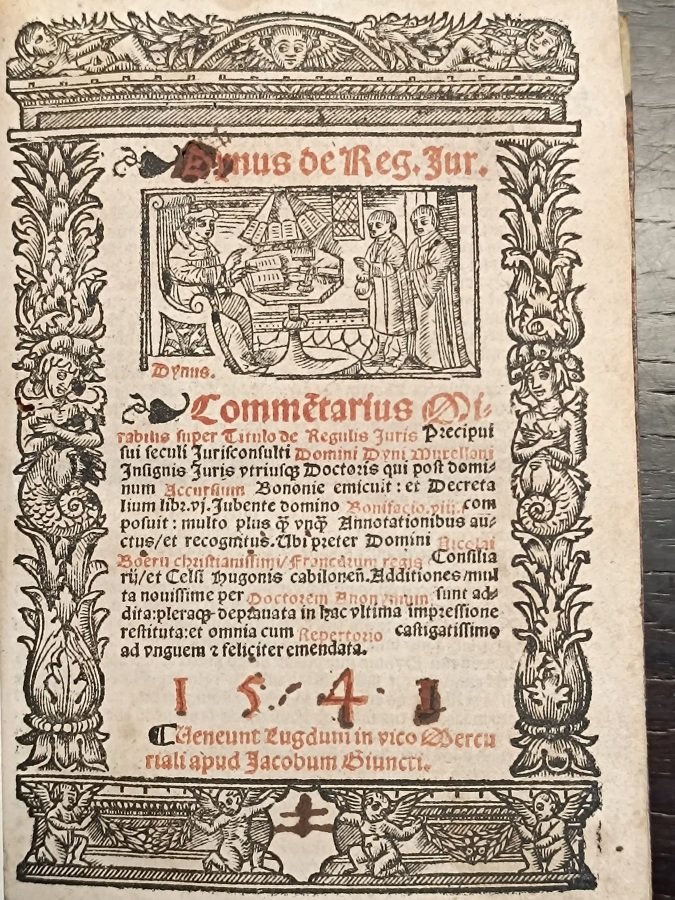 Dynus de Reg. Jur.
Dynus.
Commẽtarius Mi-
rabilis super Titulo de Regulis Juris Precipui
sui seculi Jurisconsulti Domini Dyni Muxellani
Insignis Juris vtriusqȝ Doctoris qui post domi-
num Accursium Bononie emicuit: et Decreta
lium libr.vj. Jubente domino Bonifacio.viij. com
posuit: multo plus q̃ vnq̃ Annotationibus au-
ctus/et recognitus. Ubi preter Domini Nicolai
Boerij christianissimi/Francorum regis Consilia
rij/et Celsi Hugonis cabiloneñ. Additiones/mul
ta nouissime per Doctorem Anonymum sunt ad-
dita: pleraqȝ deprauata in hac vltima impressione
restituta: et omnia cum Repertorio castigatissimo
ad vnguem ⁊ feliciter emendata.
1 5 4 1
Ueneunt Lugduni in vico Mercu
riali apud Jacobum Giuncti.